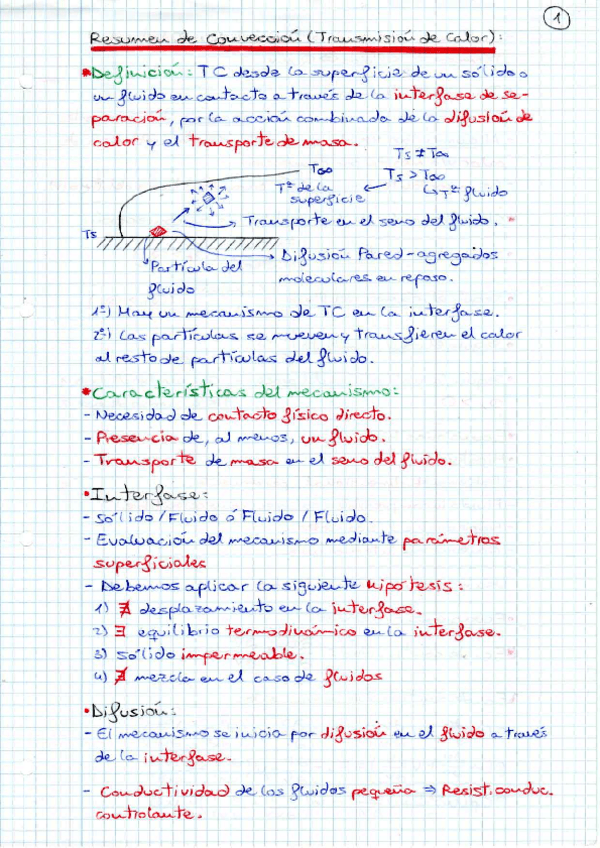 1
Resumen de Convección (Transmisión de Calor):
•Definición: TC desde la superficie de un sólido o
un fluido en contacto a través de la interfase de se-
paración, por la acción combinada de la difusión de
calor y el transporte de masa.
Ts ≠ T∞
T∞
Ts > T∞
Tª de la
superficie
↳ Tª fluido
Transporte en el seno del fluido.
Ts
Difusión Pared-agregados
moleculares en reposo.
Partícula del
fluido
1º) Hay un mecanismo de TC en la interfase.
2º) Las partículas se mueven y transfieren el calor
al resto de partículas del fluido.
•Características del mecanismo:
- Necesidad de contacto físico directo.
- Presencia de, al menos, un fluido.
- Transporte de masa en el seno del fluido.
•Interfase:
- Sólido/Fluido ó Fluido/Fluido.
- Evaluación del mecanismo mediante parámetros
superficiales
- Debemos aplicar la siguiente hipótesis:
1) ∄ desplazamiento en la interfase.
2) ∃ equilibrio termodinámico en la interfase.
3) Sólido impermeable.
4) ∄ mezcla en el caso de fluidos
•Difusión:
- El mecanismo se inicia por difusión en el fluido a través
de la interfase.
- Conductividad de los fluidos pequeña ⇒ Resist. conduc.
controlante.